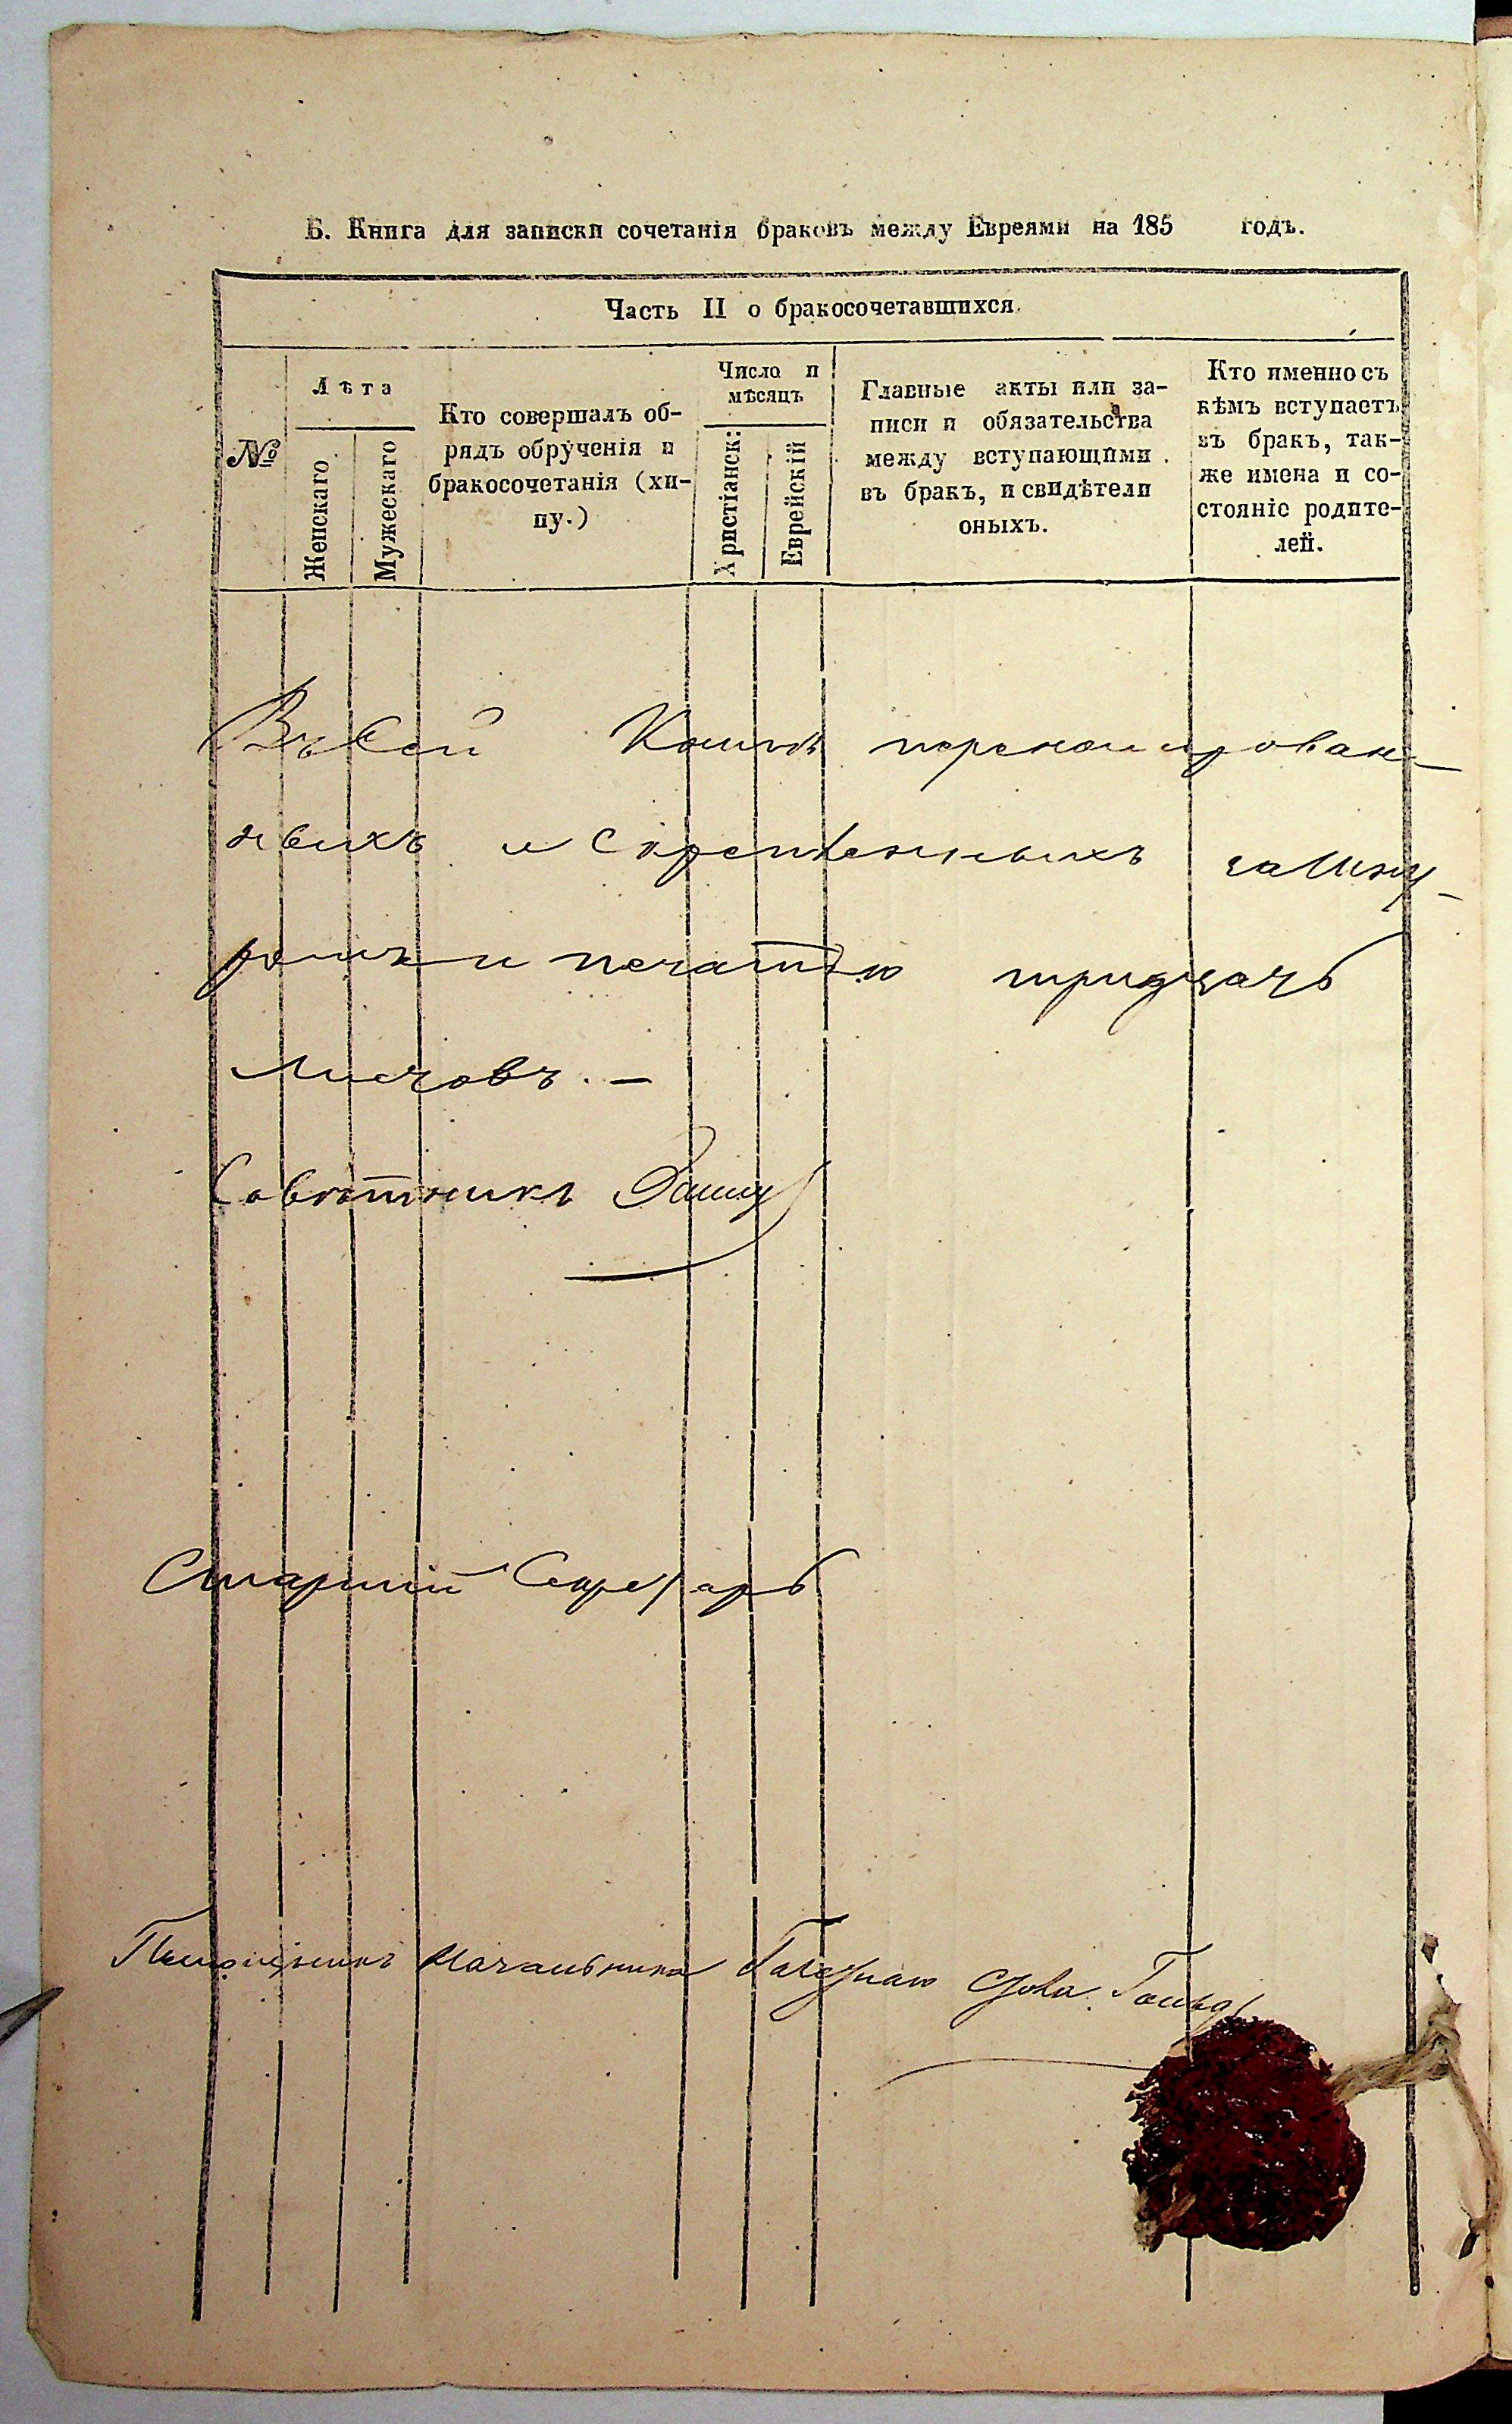 Б. Книга для записки сочетанія браковъ между Евреями на 185 годъ.
Часть II о бракосочетавшихся.
№
Лѣта
Женскаго
Мужескаго
Кто совершалъ об-
рядъ обрученія и
бракосочетанія (хи-
пу.)
Число и
мѣсяцъ
Христіанск:
Еврейскій
Главные акты или за-
писи и обязательства
между вступающими
въ бракъ, и свидѣтели
оныхъ.
Кто именно съ
кѣмъ вступаетъ
въ бракъ, так-
же имена и со-
стояніе родите-
лей.
Въ сей Книгѣ переномерован-
ныхъ и скрепленныхъ за шну-
ромъ и печатью тридцать
листовъ. —
Совѣтникъ
Старшій Секретарь
Помощникъ Начальника Газетнаго Стола